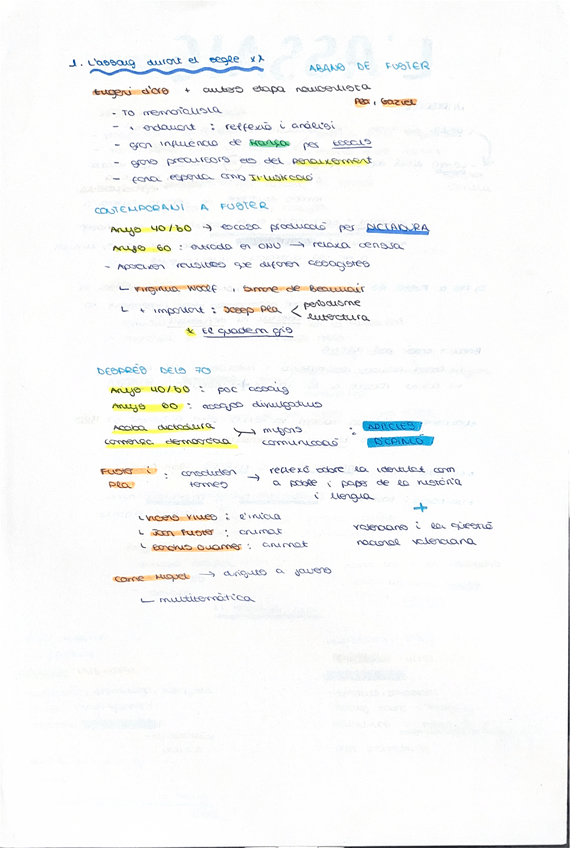 1. L'assaig durant el segle XX
ABANS DE FUSTER
Eugeni d'Ors + autors etapa noucentista
Pla, Gaziel
- To memorialista
- + endavant : reflexió i anàlisi
- gran influència de França per
- grans precursors es del Renaixement
- forta espenta amb Il·lustració
CONTEMPORANI A FUSTER
Anys 40/50 → escasa producció per DICTADURA
Anys 60 : entrada en ONU → relaxa censura
- Apareixen revistes que difonen assagistes
↳ Virginia Woolf, Simone de Beauvoir
↳ + important : Josep Pla < periodisme
literatura
* El quadern gris
DESPRÉS DELS 70
Anys 40/50 : poc assaig
Anys 60 : assajos divulgatius
Acaba dictadura
comença democràcia → mitjans
comunicació : ARTICLES
D'OPINIÓ
Fuster i
Pla : coincideixen
temes → reflexió sobre la identitat com
a poble i paper de la història
i llengua
+
valencians i la qüestió
nacional valenciana
↳ Vicens Vives : l'inicia
↳ Joan Fuster : animat
↳ Sanchis Guarner : animat
→ dirigits a joves
↳ multitemàtica